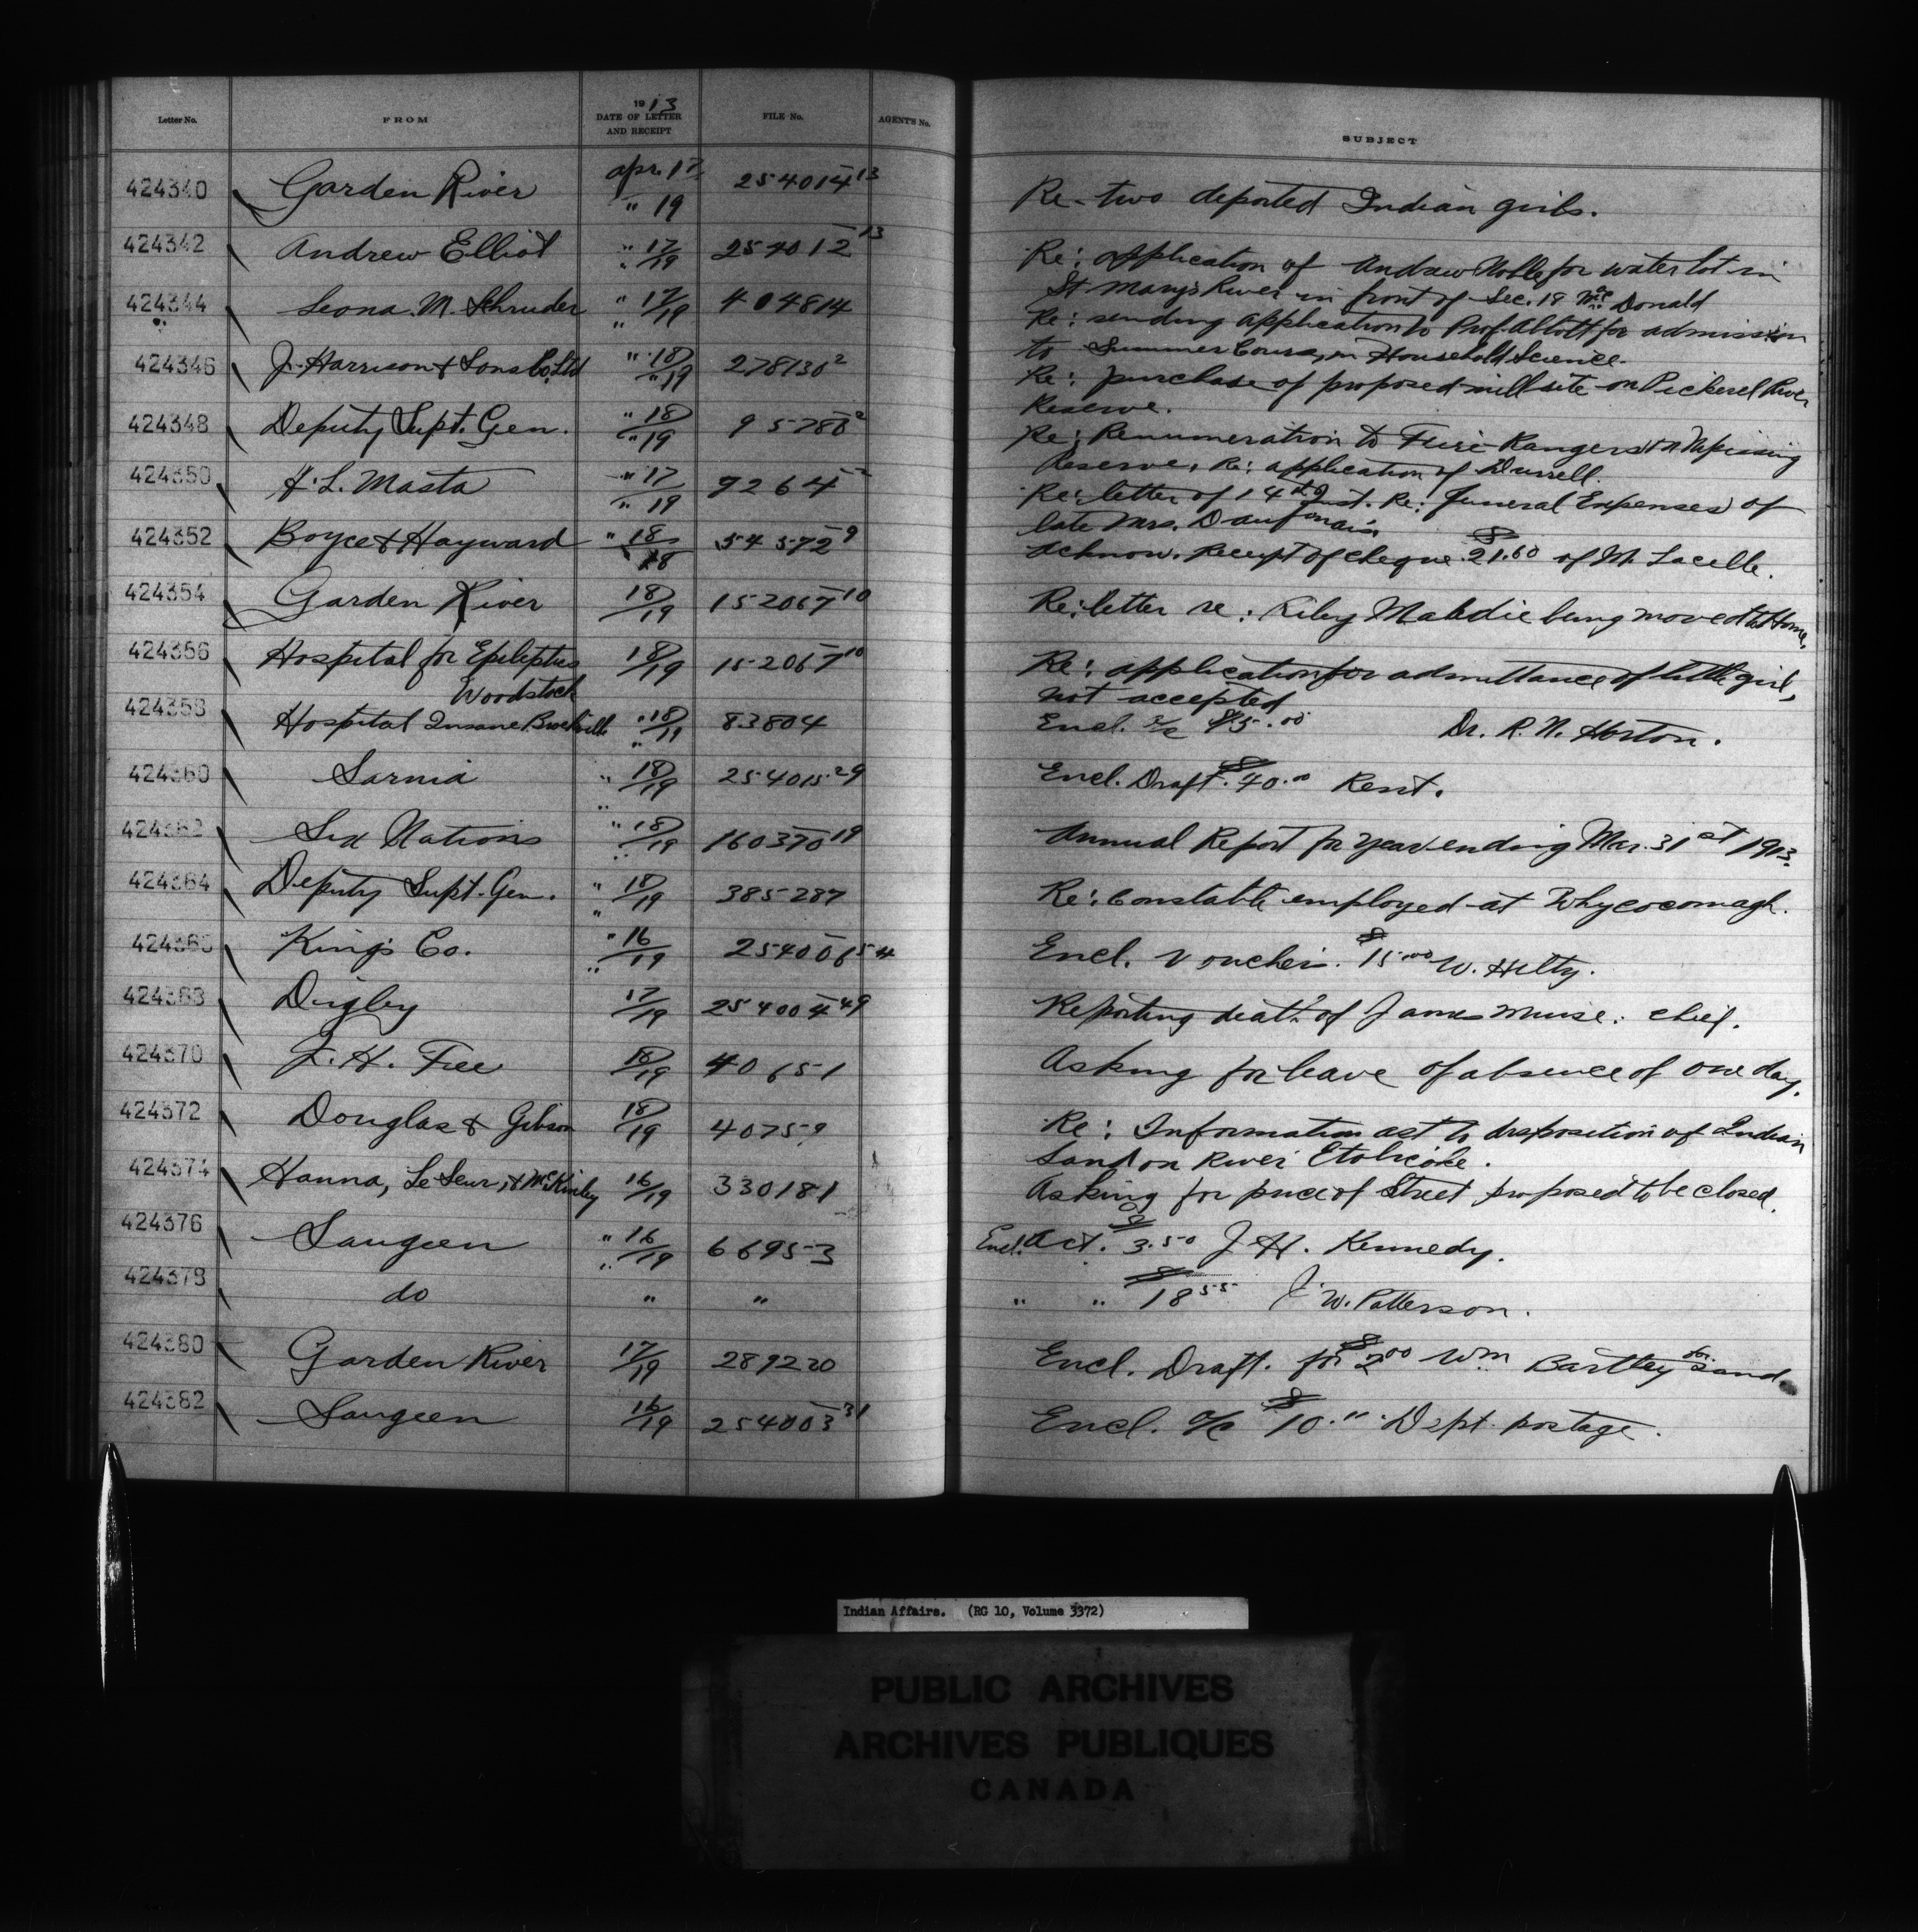 Letter No. FROM 1913 DATE OF LETTER AND RECEIPT FILE No. AGENT'S No. SUBJECT
424340 Garden River Apr. 17 / " 19 254014-13 Re- two deported Indian girls.
424342 Andrew Elliot " 17 / " 19 254012-13 Re: application of Andrew Noble for water lot in
St Mary's River in front of Sec. 18 McDonald
424344 Leona. M. Schruder " 17 / " 19 404814 Re: sending application to Prof. Abbott for admission
to Summer Course, in Household Science.
424346 J. Harrison & Sons Co. Ltd " 18 / " 19 278130-2 Re: purchase of proposed mill site on Pickerel River
Reserve.
424348 Deputy Supt. Gen. " 18 / " 19 95288-2 Re: Renumeration to Fire Rangers on Nipissing
Reserve, Re: application of Durrell.
424350 H. L. Masta " 17 / " 19 9264-2 Re: letter of 14th Inst. Re: Funeral Expenses of
late Mrs.
424352 Boyce & Hayward " 18 / 18 54572-9 Acknow. Receipt of cheque $21.60 of M. Lacelle.
424354 Garden River 18/19 152067-10 Re: letter re: Riley being moved to Home,
424356 Hospital for Epileptics 18/19 152067-10 Re: application for admittance of little girl,
Woodstock not accepted
424358 Hospital Insane Brockville " 18 / " 19 83804 Encl. a/c .00 Dr. R. N. Horton.
424360 Sarnia " 18 / " 19 254015-29 Encl. Draft. $40.00 Rent.
424362 Six Nations " 18 / " 19 160370-19 Annual Report for year ending Mar. 31st 1913.
424364 Deputy Supt. Gen. " 18 / " 19 385287 Re: Constable employed at Whycocomagh.
424366 King's Co. " 16 / " 19 254006-54 Encl. Vouchers. $15.00 W. Hilty.
424368 Digby 17/19 254004-49 Reporting death of James Muise. chief.
424370 J. H. Free 18/19 40651 Asking for leave of absence of one day.
424372 Douglas & Gibson 18/19 40759 Re: Information as to disposition of Indian
Land on River Etobicoke.
424374 Hanna, LeSeur, & McKinley 16/19 330181 Asking for price of Street proposed to be closed.
424376 Saugeen " 16 / " 19 66953 Encl. Act. $3.50 J. H. Kennedy.
424378 do " " " " $18.55 J. W. Patterson.
424380 Garden River 17/19 289220 Encl. Draft. for $2.00 Wm Bartley for Sand
424382 Saugeen 16/19 254003-31 Encl. a/c $10." Dept. postage.
Indian Affairs. (RG 10, Volume 3372)
PUBLIC ARCHIVES
ARCHIVES PUBLIQUES
CANADA